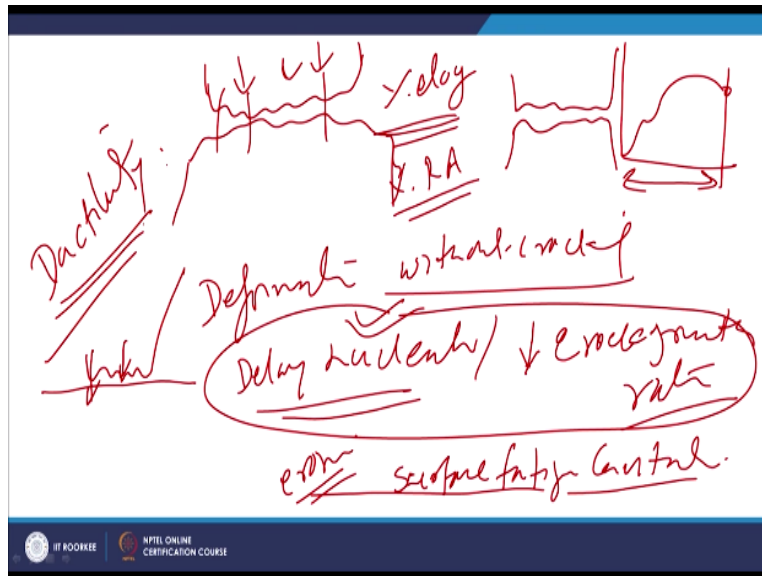 %. elog
Ductility:
%. RA
Deformati without crackig
Delay nucleati / ↓ crack growth
rate
erosn surface fatig Cavitatn.
IIT ROORKEE
NPTEL ONLINE
CERTIFICATION COURSE